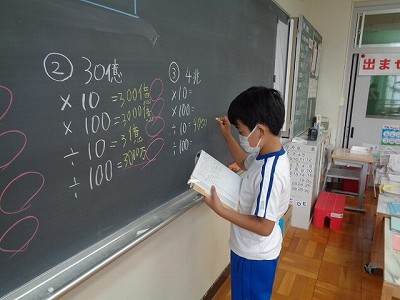 ② 30億
×10=300億
×100=3000億
÷10=3億
÷100=3000万
③ 4兆
×10=
×100=
÷10=
÷100=
出ませ